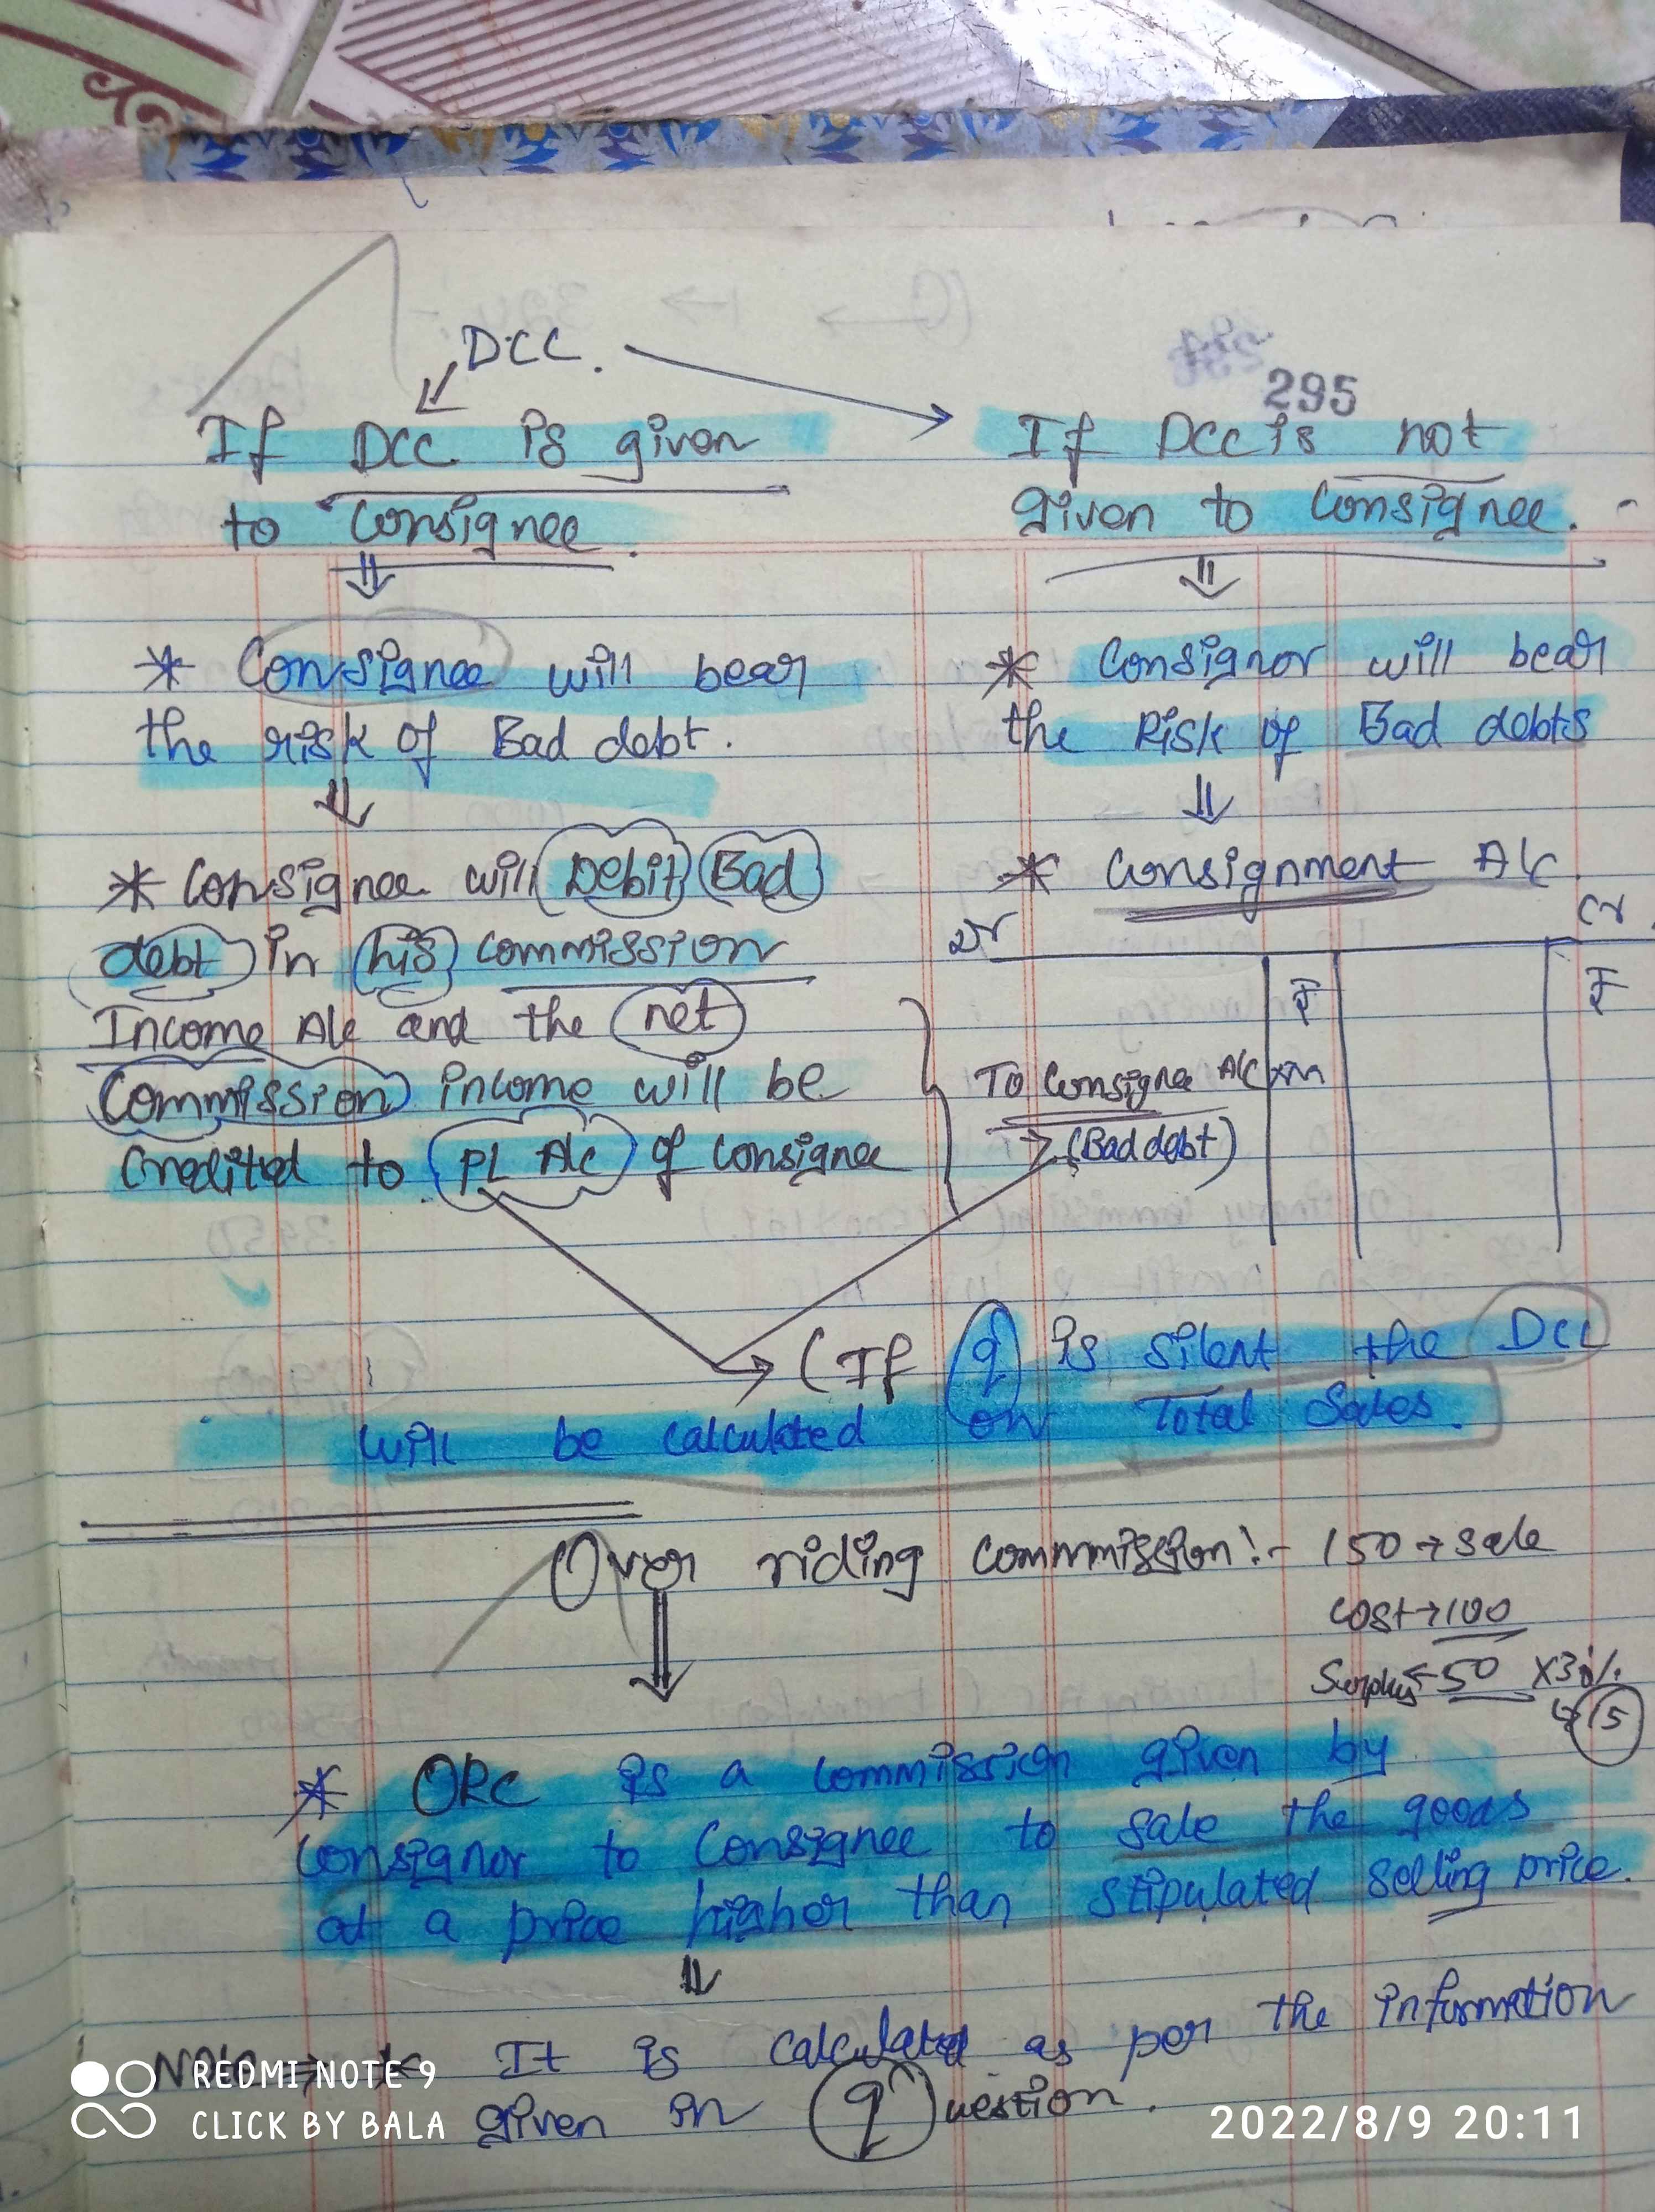 DCC.
295
If DCC is given
to Consignee.
If DCC is not
given to Consignee.
* Consignee will bear
the risk of Bad debt.
* Consignee will Debit Bad
debt in his commission
Income A/c and the net
Commission income will be
Credited to PL A/c of consignee
* Consignor will bear
the Risk of Bad debts
* Consignment A/c.
Dr
Cr.
₹
₹
To Consignee A/c xm
→ (Bad debt)
→ (If q is silent the DCC
will be calculated on Total Sales.
Over riding commmission:- 150 → sale
cost → 100
Surplus ← 50 x 30%
↳ 15
* ORC is a commission given by
consignor to Consignee to sale the goods
at a price higher than stipulated selling price.
Note → * It is calculated as per the information
given in question.
REDMI NOTE 9
CLICK BY BALA
2022/8/9 20:11